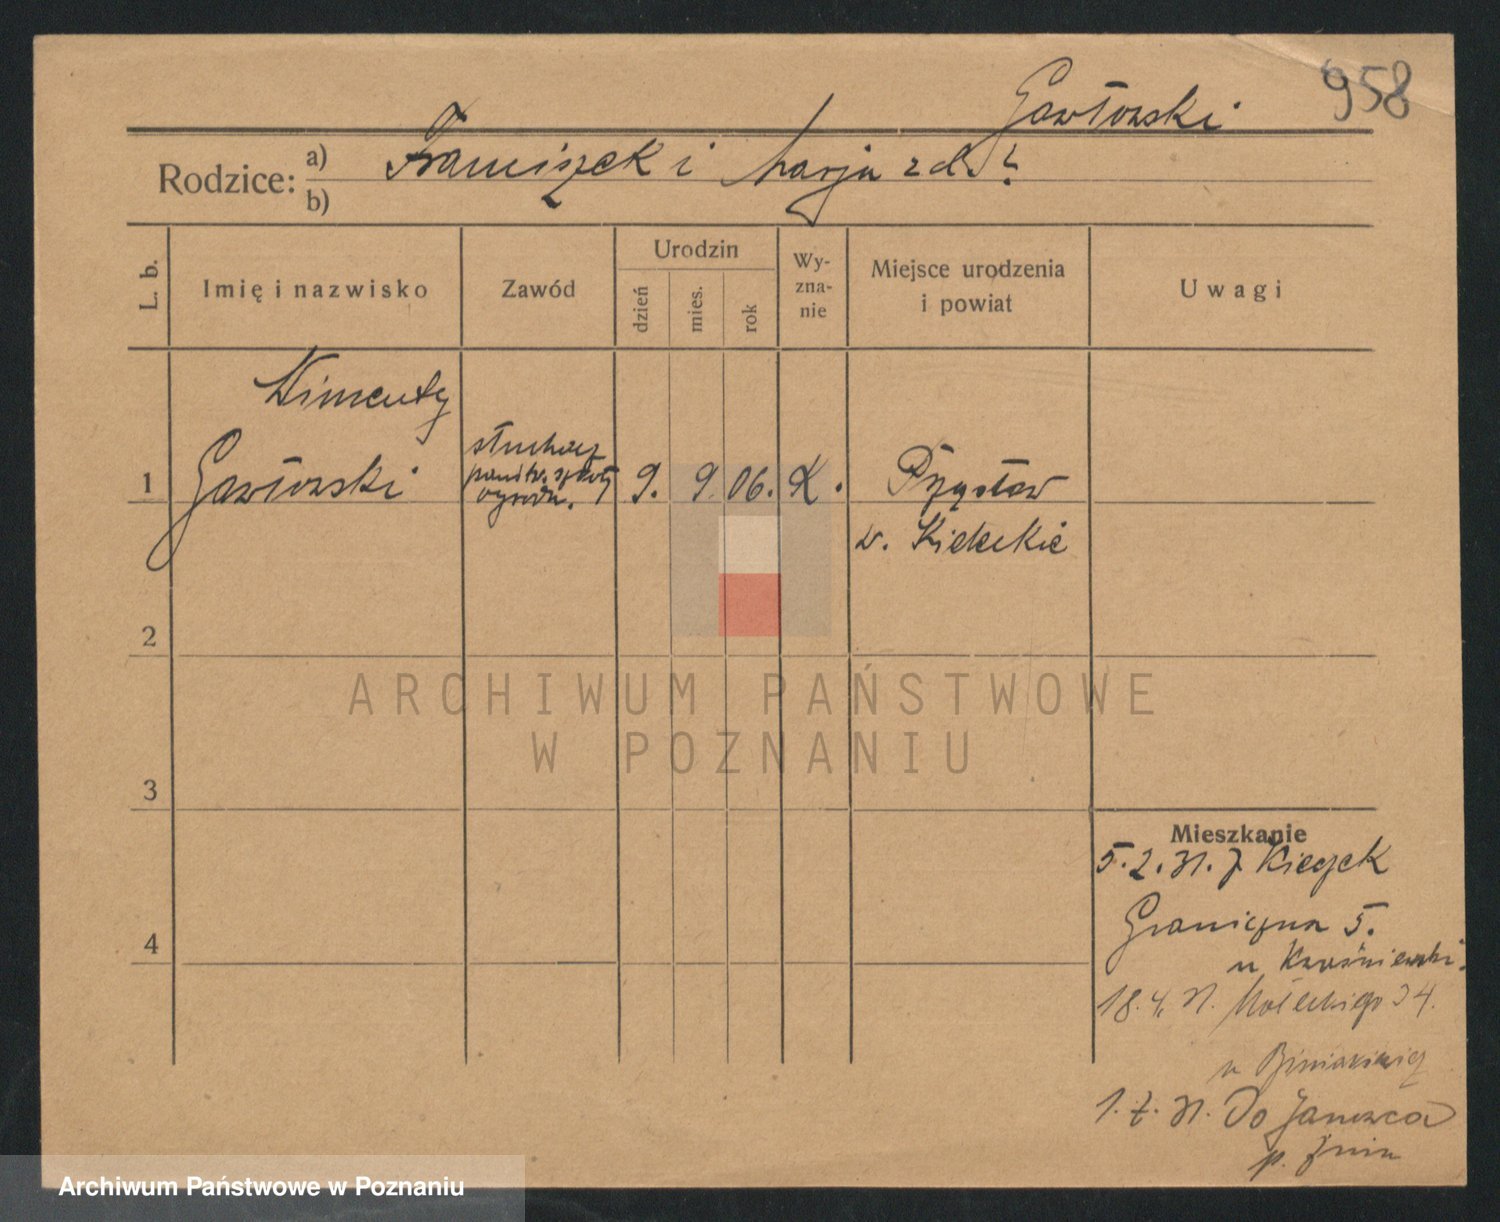 Gawłowski
958
Rodzice: a) Franciszek i Marja z d. ?
b)
L. b.
Imię i nazwisko
Zawód
Urodzin
dzień
mies.
rok
Wy-
zna-
nie
Miejsce urodzenia
i powiat
Uwagi
1
Gawłowski
słuchacz
państw. szkoły
ogrodn.
9. 9. 06. K.
Przysław
w. Kieleckie
2
ARCHIWUM PAŃSTWOWE
W POZNANIU
3
4
Mieszkanie
5. 2. 31. z
Graniczna 5.
u Kwaśniewski.
18. 4. 31. Małeckiego 34.
u
1. 7. 31. Do Janowca
p. Żnin
Archiwum Państwowe w Poznaniu